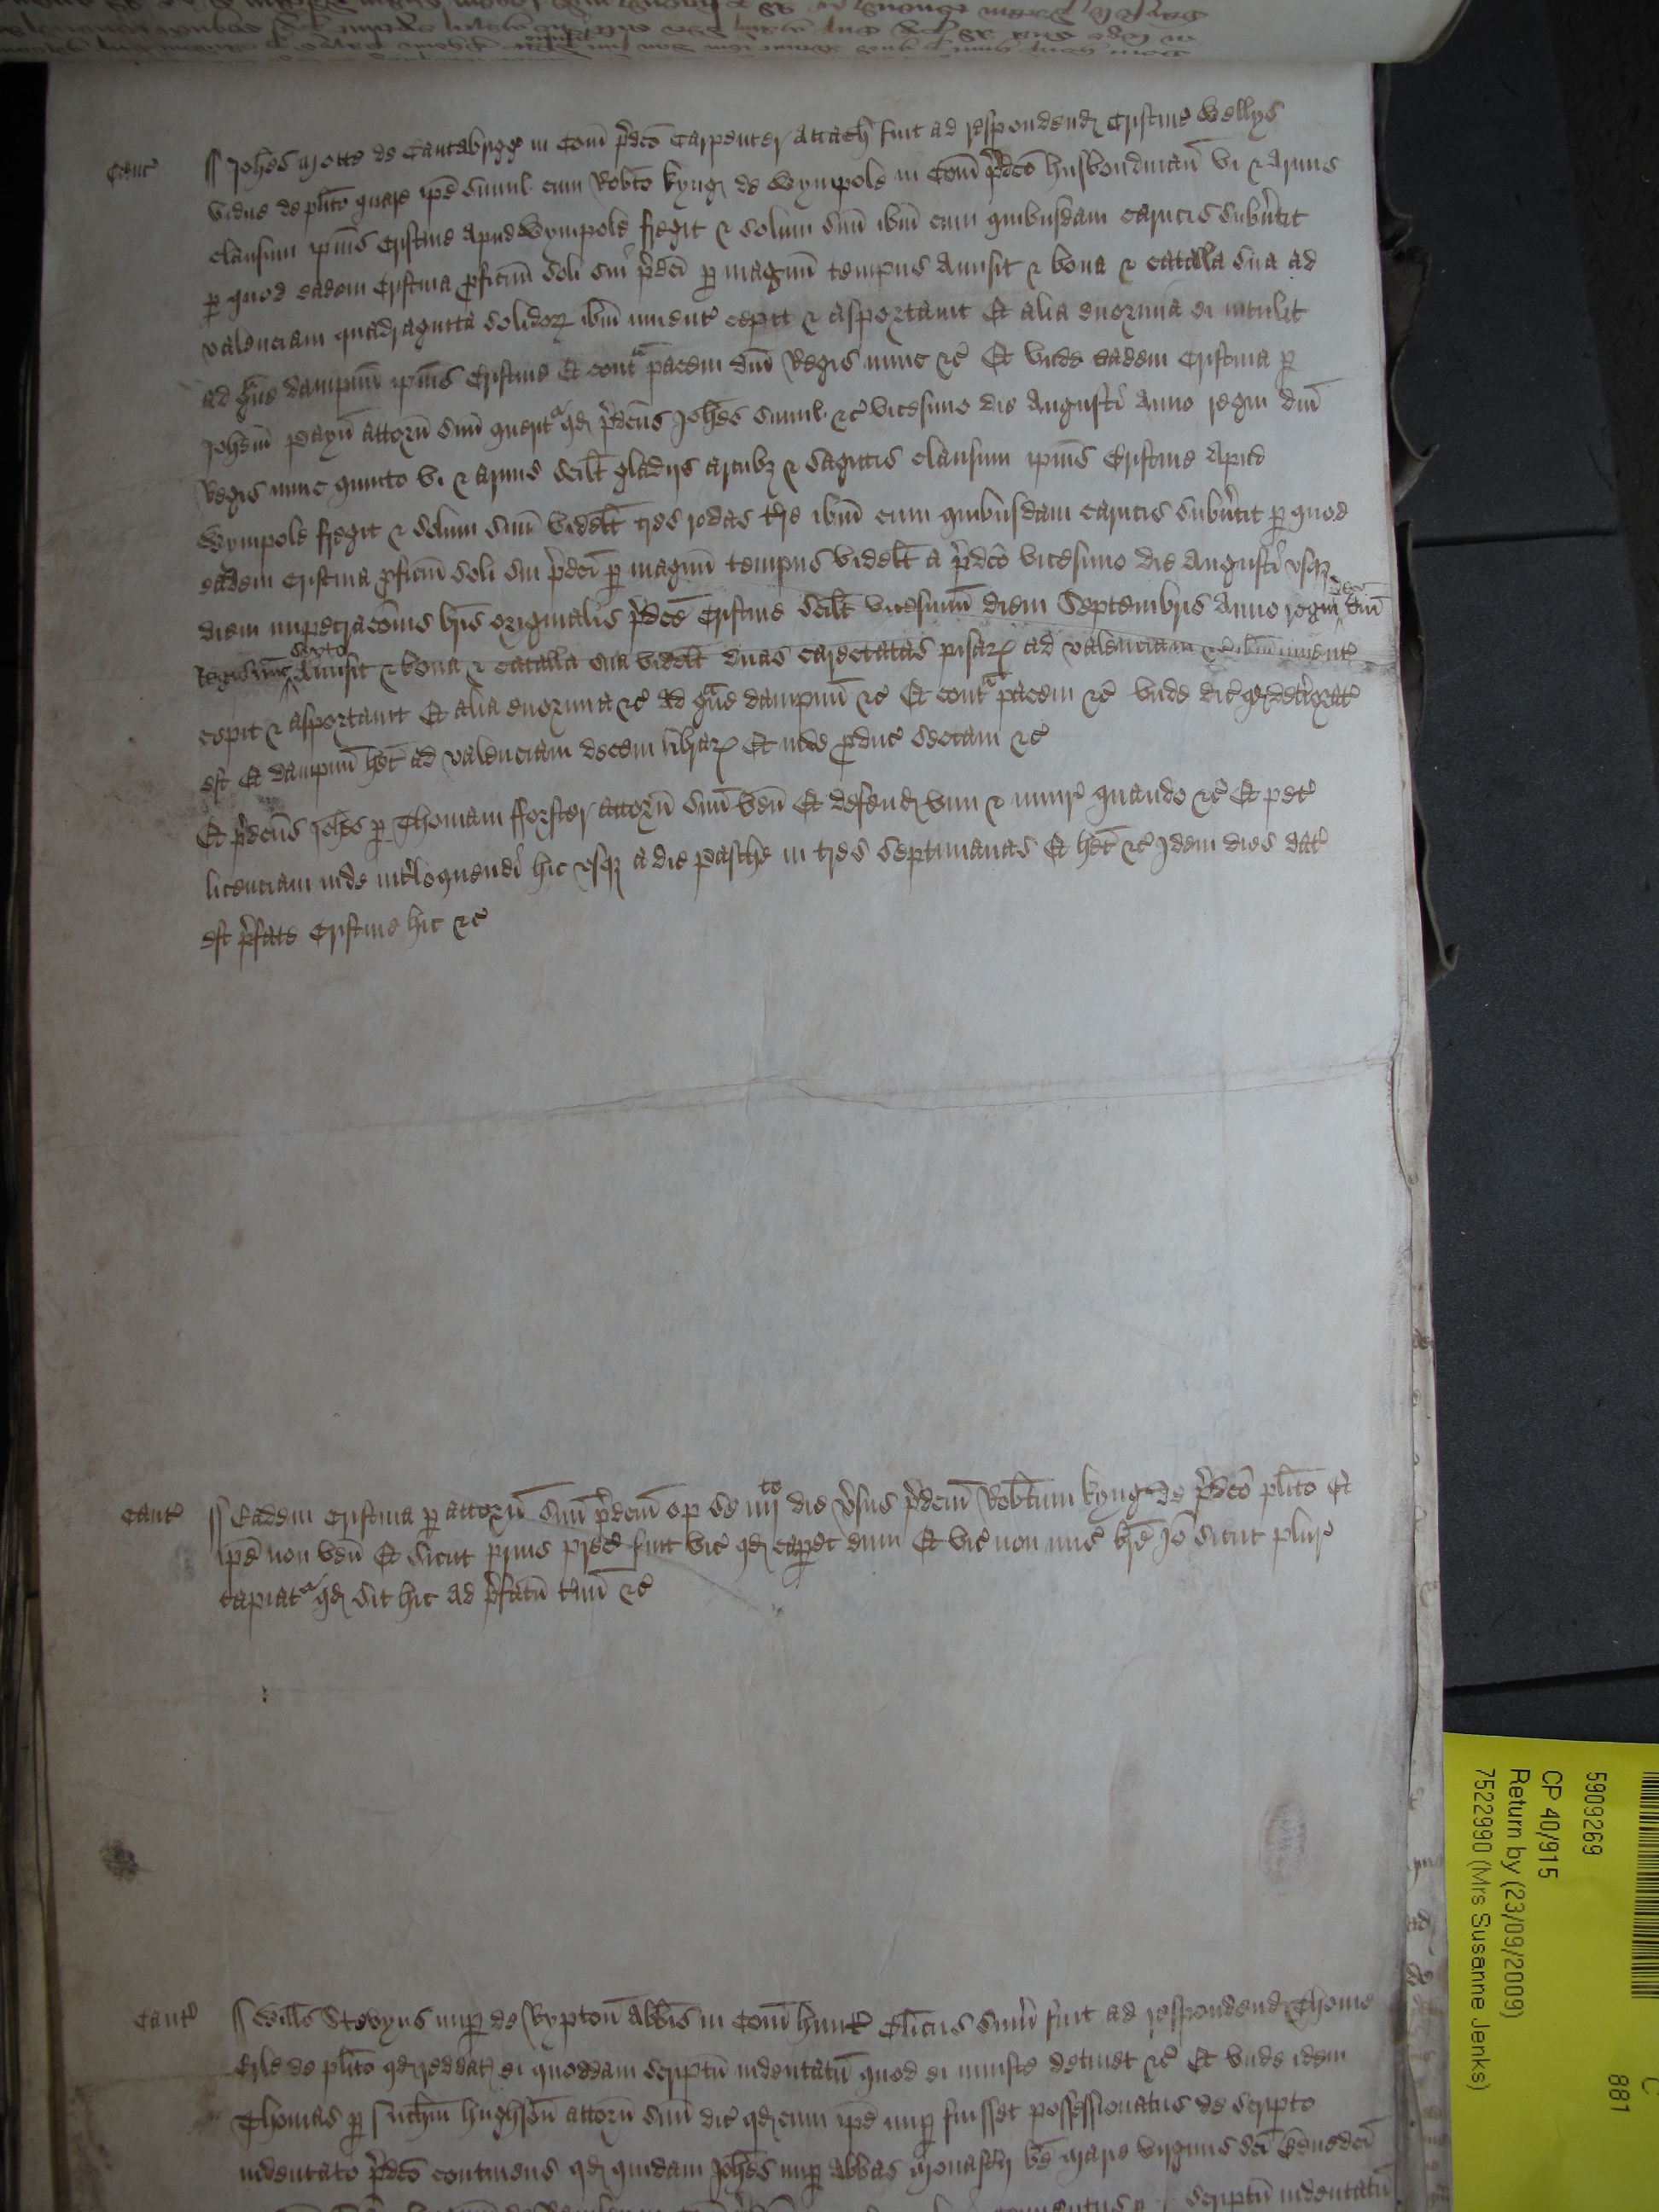 Cant' Joh̄es Motte de Cantabrigge in Com̄ p̄dc̄o Carpenter attach fuit ad respondend Cristine Wellys
vidue de pl̄ito quare ip̄e simul cum Rob̄to Kyng de Wympole in Com̄ p̄dc̄o husbondman vi & armis
clausum ip̄ius Cristine apud Wympole fregit & solum suū ib̄m cum quibusdam carucis subv̄tit
p quod eadem Cristina p̄ficuū soli sui p̄dc̄i p magnū tempus amisit & bona & catalla sua ad
valenciam quadraginta solidoꝝ ib̄m invent' cepit & asportavit Et alia enormia ei intulit
ad g̃ve dampnū ip̄ius Cristine Et cont̃ pacem dn̄i Regis nunc &c̄ Et unde eadem Cristina p
Joh̄em Payn attorn̄ suū querit qd p̄dc̄us Joh̄es simul &c̄ vicesimo die Augusti anno regni dn̄i
Regis nunc quinto vi & armis scil̄t gladiis arcubȝ & sagittis clausum ip̄ius Cristine apud
Wympole fregit & solum suū videl̄t tres rodas t̄re ib̄m cum quibusdam carucis subv̄tit p quod
eadem Cristina p̄ficuū soli sui p̄dc̄i p magnū tempus videl̄t a p̄dc̄o vicesimo die Augusti usqȝ
diem impetrac̄onis br̄is originalis p̄dc̄e Cristine scil̄t vicesimū diem Septembris anno regni dc̄i dn̄i
Regis nunc sexto amisit & bona & catalla sua videl̄t duas carectatas pisaꝝ ad valenciam &c̄ ib̄m invent'
cepit & asportavit Et alia enormia &c̄ ad g̃ve dampnū &c̄ Et cont̃ pacem &c̄ unde dic' qd det̄iorat'
est Et dampnū h̄et ad valenciam decem libraꝝ Et inde p̄duc' sectam &c̄
Et p̄dc̄us Joh̄es p Thomam Forster attorn̄ suū ven̄ Et defend vim & iniur' quando &c̄ Et pet'
licenciam inde int̄loquendi hic usqȝ a die Pasche in tres septimanas Et h̄et &c̄ Idem dies dat'
est p̄fate Cristine hic &c̄
Cant' Eadem Cristina p attorn̄ suū p̄dc̄m op se iiij to die v̄sus p̄dc̄m Rob̄tum Kyng de p̄dc̄o pl̄ito Et
ip̄e non ven̄ Et sicut prius prec' fuit vic' qd caperet eum Et vic' non mis' br̄e Jo sicut plur'
capiat' qd sit hic ad p̄fatū t̄min̄ &c̄
Cant' Will̄s Stevyns nup de Rypton Abb̄is in Com̄ Hunt' Cl̄icus sum̄ fuit ad respondend Thome
Erle de pl̄ito qd reddat ei quoddam scriptū indentatū quod ei iniuste detinet &c̄ Et unde idem
Thomas p Hughson attorn̄ suū dic' qd cum ip̄e nup fuisset possessionatus de scripto
indentato p̄dc̄o continens qd quidam Joh̄es nup Abbas Monast̄ij b̄e Marie virginis
scriptū indentatū
59099269
CP 40/915
Return by (23/09/2009)
7522990 (Mrs Susanne Jenks)
C
881